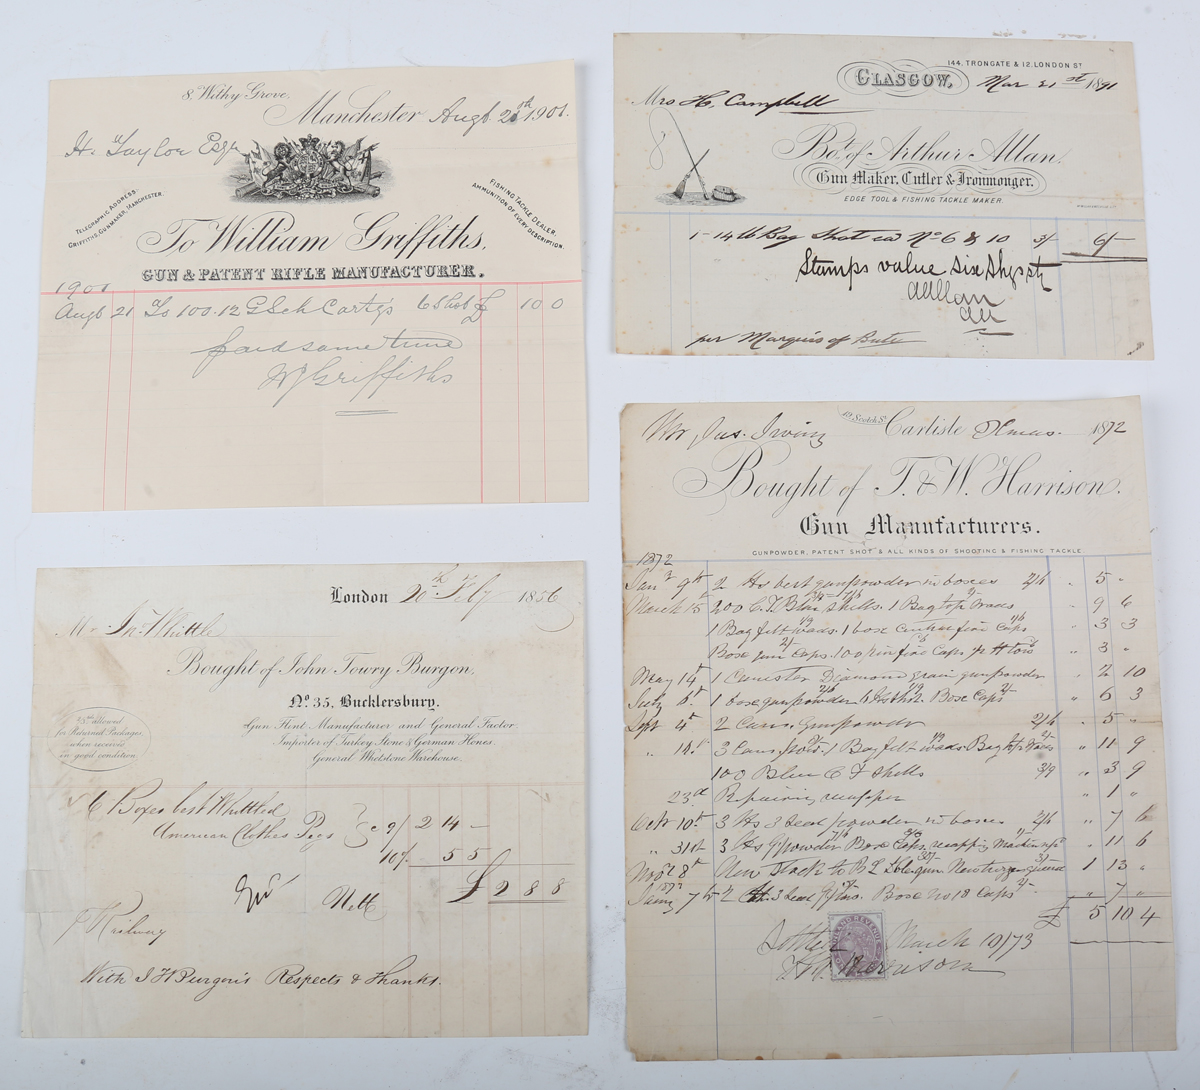 8, Withy Grove.
Manchester Augt 20th 1901.
H. Taylor Esqr
TELEGRAPHIC ADDRESS:
GRIFFITHS, GUNMAKER, MANCHESTER.
FISHING TACKLE DEALER,
AMMUNITION OF EVERY DESCRIPTION.
To William Griffiths,
GUN & PATENT RIFLE MANUFACTURER.
1901
Augt 21 To 100.12 G Sch Cartgs 6 Shot £ 10 0
paid same time
W Griffiths
144, TRONGATE & 12, LONDON ST
GLASGOW, Mar 21st 1891
Mrs H. Campbell
Bot. of Arthur Allan,
Gun Maker, Cutler & Ironmonger.
EDGE TOOL & FISHING TACKLE MAKER.
1-14 lb Bag Shot ea No 6 & 10 3/ 6/-
Stamps value Six Shgs
AAllan
per Marquis of Bute
London 20th Feby 1856
Mr Jn Whittle
Bought of John Towry Burgon,
No. 35, Bucklersbury.
Gun Flint Manufacturer and General Factor
Importer of Turkey Stone & German Hones.
General Whetstone Warehouse.
allowed
for Returned Packages,
when received
in good condition
6 Boxes best Whittled
American Clothes Pegs 9/ 2 14 -
10% 5 5
£ 2 8 8
Nett
p Railway
With J T Burgon's Respects & Thanks.
19 Scotch St.
Carlisle Xmas. 1872
Mr Jas. Irving
Bought of T. & W. Harrison.
Gun Manufacturers.
GUNPOWDER, PATENT SHOT & ALL KINDS OF SHOOTING & FISHING TACKLE
1872
Jany 9th 2 lbs best gunpowder in boxes 2/6 " 5 "
March 15 200 C.F. Blue Shells. 1 Bag top wads " 9 6
1 Bag felt wads. 1 box Centre fire Caps " 3 3
Box gun Caps. 100 pin fire Caps " 3 "
May 14th 1 Canister Diamond grain gunpowder " 2 10
July 6th 1 box gunpowder Box Caps " 6 3
Sept 4th 2 Cans. Gunpowder 2/6 " 5 "
" 14th 3 Cans 1 Bag felt wads. Bag top wads " 11 9
100 Blue C F Shells 3/9 " 3 9
23rd Repairing " 1 "
Octr 10th 3 lbs powder in boxes 2/6 " 7 6
" 31st 3 lbs powder Box Caps " 11 6
Novr 8th New Stock to B L gun 1 13 "
7th 2 Box No 18 Caps " 7 "
£ 5 10 4
INLAND REVENUE
Settled March 10/73
Harrison